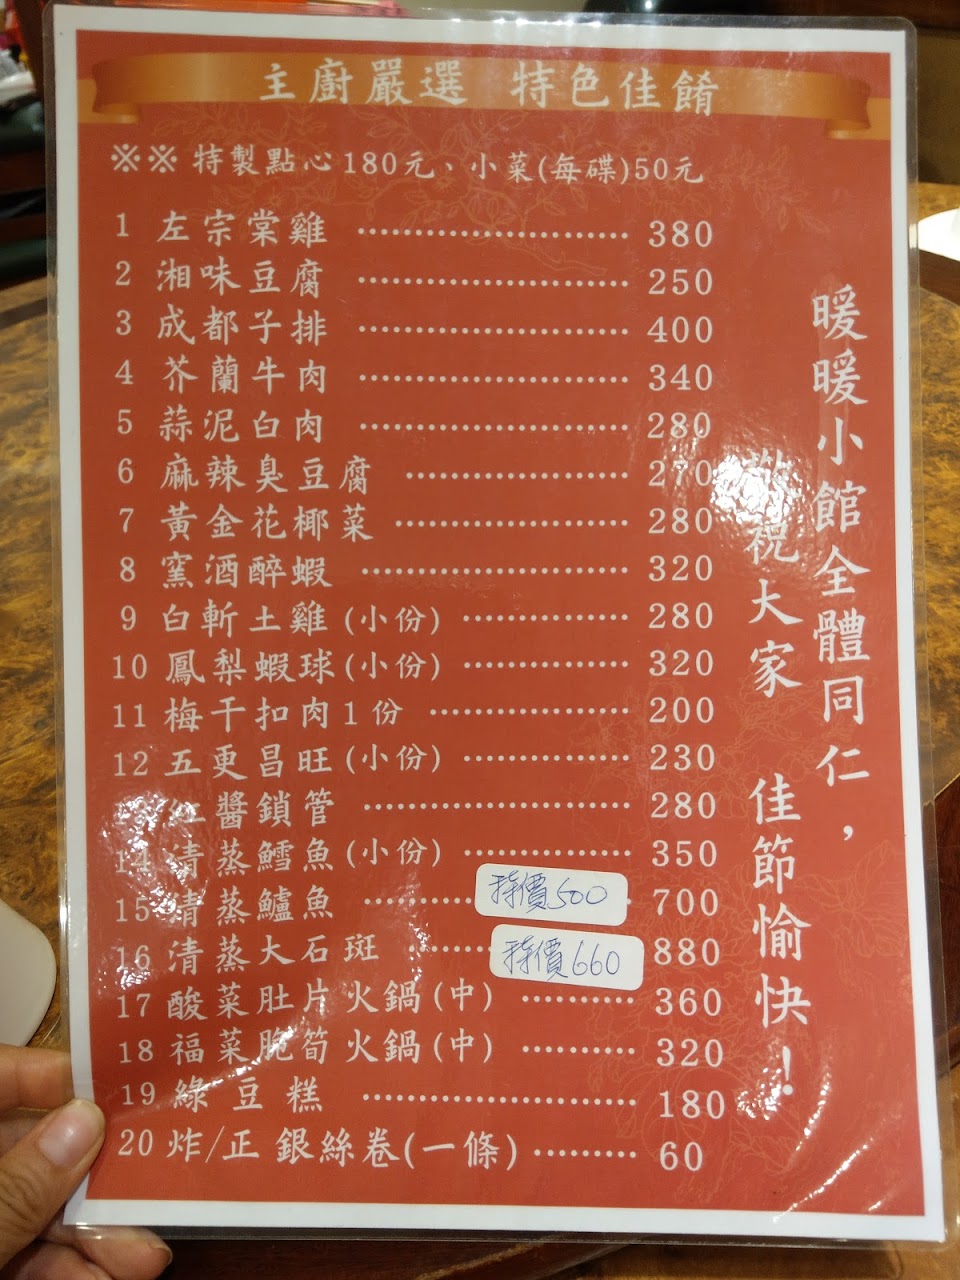 主廚嚴選 特色佳餚
※※ 特製點心180元、小菜(每碟)50元
1 左宗棠雞 380
2 湘味豆腐 250
3 成都子排 400
4 芥蘭牛肉 340
5 蒜泥白肉 280
6 麻辣臭豆腐 270
7 黃金花椰菜 280
8 窯酒醉蝦 320
9 白斬土雞(小份) 280
10 鳳梨蝦球(小份) 320
11 梅干扣肉1份 200
12 五更昌旺(小份) 230
紅醬鎖管 280
14 清蒸鱈魚(小份) 350
15 清蒸鱸魚 特價500 700
16 清蒸大石斑 特價660 880
17 酸菜肚片火鍋(中) 360
18 福菜脆筍火鍋(中) 320
19 綠豆糕 180
20 炸/正 銀絲卷(一條) 60
暖暖小館全體同仁，
敬祝大家 佳節愉快！